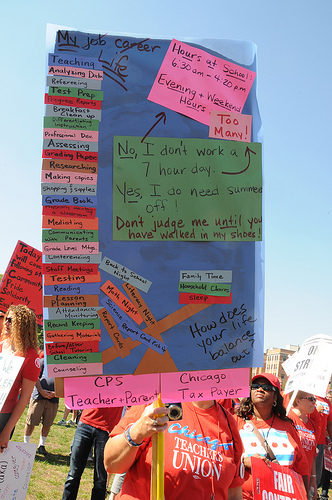 My job career
Life
Hours at School:
6:30am - 4:20pm
Evening + Weekend
Hours
Too
Many!
Teaching
Analyzing Data
Refereeing
Test Prep
Progress Reports
Breakfast
Clean up
Differentiating
Instruction
Professional Dev.
Assessing
Grading Paper
Researching
Making copies
Shopping 4 supplies
Grade Book
Mediating
Communicating
with Parents
Grade Level Mtgs.
Conferencing
Staff Meetings
Testing
Reading
Lesson
Planning
Attendance
Monitoring
Record Keeping
Gathering Materials
Before/After
School Tutoring
Cleaning
Counseling
No, I don't work a
7 hour day.
Yes, I do need summer
off!
Don't judge me until you
have walked in my shoes!
Back to School
Night
Literacy Night
Math Night
Science
Report Card Pickup
Report Cards
Family Time
Household Chores
Sleep
How does
your life
balance
out
CPS
Teacher+Parent
Chicago
Tax Payer
Today
Community
Pride
Solidarity
Chicago
TEACHERS
UNION
FAIR
ON
STR